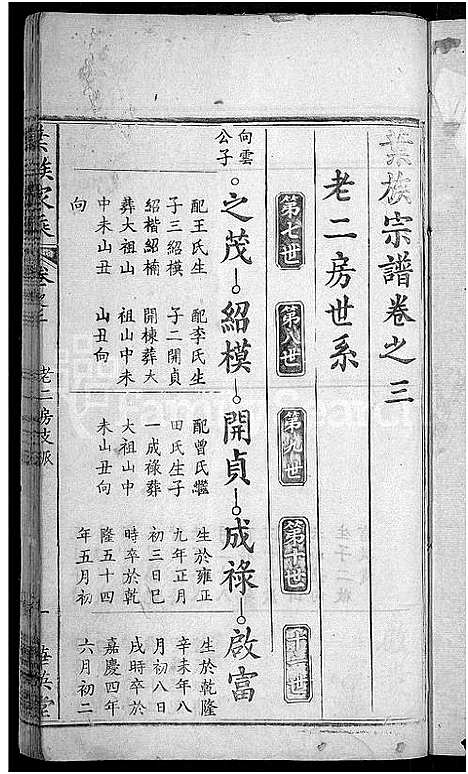 葉族宗譜卷之三
老二房世系
第七世 第八世 第九世 第十世 十一世
向雲公子
之茂 紹模 開貞 成祿 啟富
配王氏生
子三紹模
紹楷紹楠
葬大祖山
中未山丑
向
配李氏生
子二開貞
開棟葬大
祖山中未
山丑向
配曾氏繼
田氏生子
一成祿葬
大祖山中
未山丑向
生於雍正
九年正月
初三日巳
時卒於乾
隆五十四
年五月初
生於乾隆
辛未年八
月初八日
戌時卒於
嘉慶四年
六月初二
葉族宗譜 卷之三 老二房支派 一